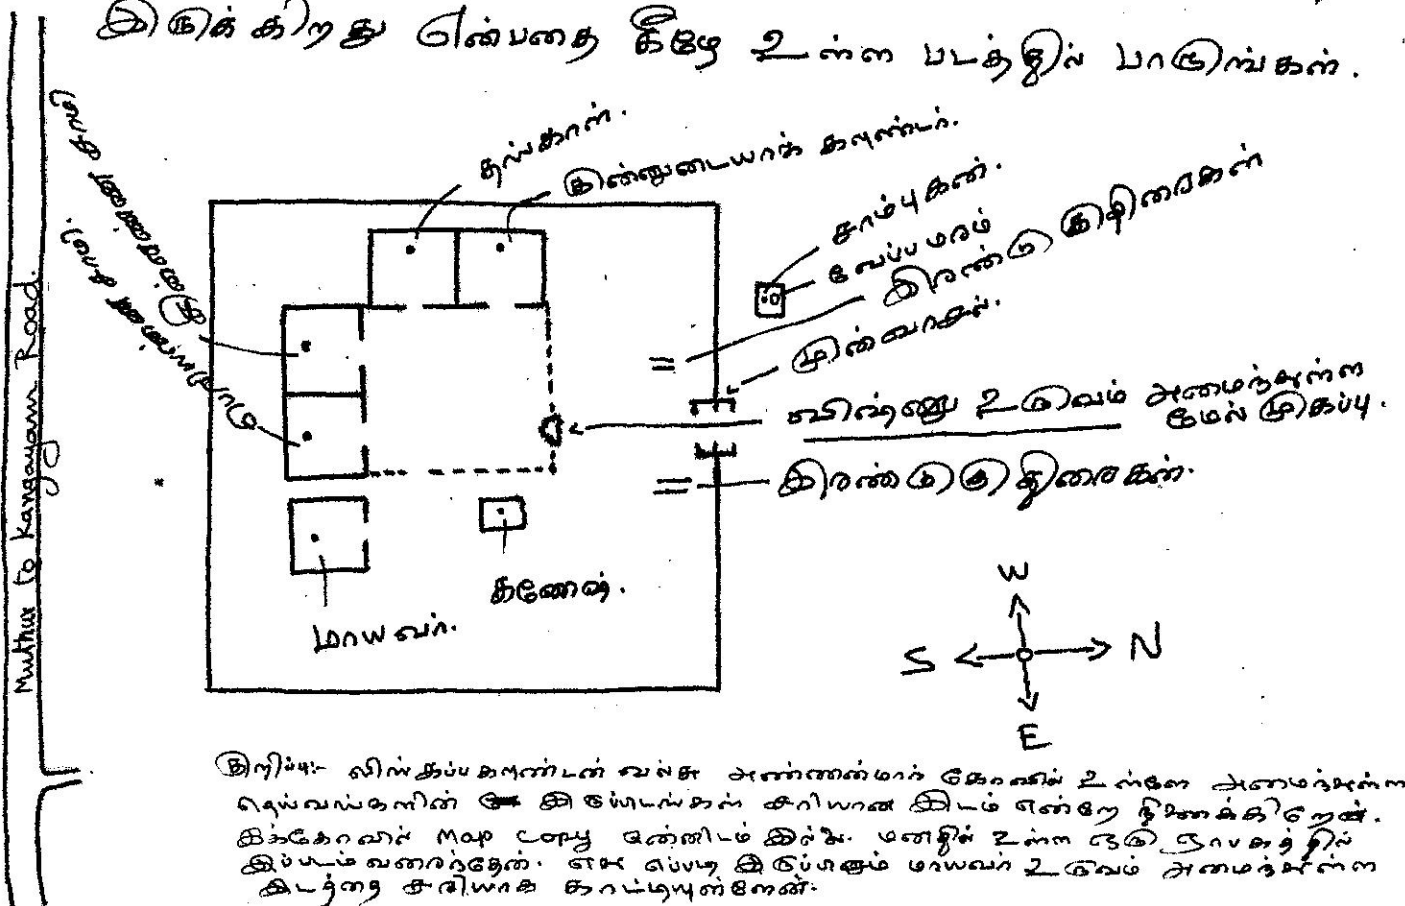 இருக்கிறது என்பதை கீழே உள்ள படத்தில் பாருங்கள்.
தங்காள்.
குன்னுடையாக் கவுண்டர்.
சாம்புகன்.
வேப்பமரம்
இரண்டு குதிரைகள்
முன்வாசல்.
விஷ்ணு உருவம் அமைந்துள்ள
மேல் முகப்பு.
இரண்டு குதிரைகள்.
கணேஷ்.
மாயவர்.
Muthur to Kangayam Road.
W
S
N
E
குறிப்பு:- லிங்கப்பகவுண்டன் வல்சு அண்ணன்மார் கோவில் உள்ளே அமைந்துள்ள
தெய்வங்களின் இருப்பிடங்கள் சரியான இடம் என்றே நினைக்கிறேன்.
இக்கோவில் Map copy என்னிடம் இல்லை. மனதில் உள்ள ஒரு ஞாபகத்தில்
இப்படம் வரைந்தேன். எது எப்படி இருப்பினும் மாயவர் உருவம் அமைந்துள்ள
இடத்தை சரியாக காட்டியுள்ளேன்.